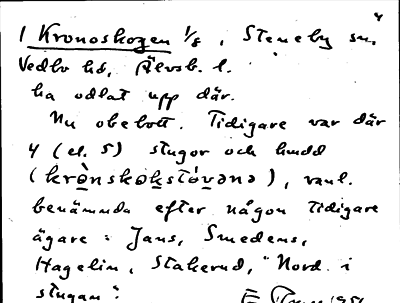 1 Kronoskogen 1/8, Steneby sn.
Vedbo hd, Älvsb. l.
ha odlat upp där.
Nu obebott. Tidigare var där
4 (el. 5) stugor och hudd
(krònskøkstúvənə), vanl.
benämnda efter någon tidigare
ägare: Jans, Smedens,
Hagelin, Stakerud, "Nord i
stugan".